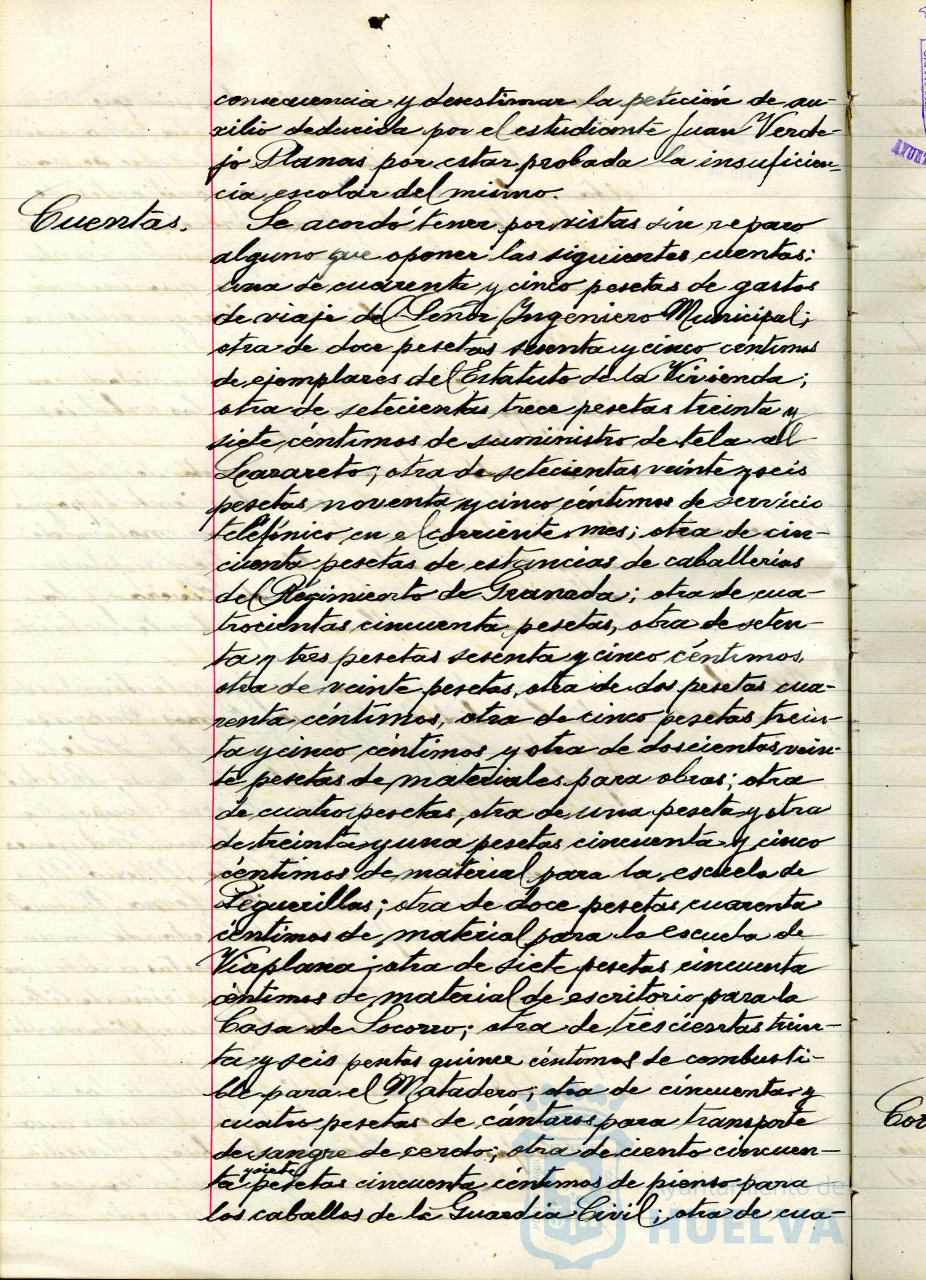 consecuencia y desestimar la petición de au-
xilio deducida por el estudiante Juan Verde-
jo Planas por estar probada la insuficien-
cia escolar del mismo.
Cuentas.
Se acordó tener por vistas sin reparo
alguno que oponer las siguientes cuentas:
una de cuarenta y cinco pesetas de gastos
de viaje del Señor Ingeniero Municipal;
otra de doce pesetas sesenta y cinco céntimos
de ejemplares del Estatuto de la Vivienda;
otra de setecientas trece pesetas treinta y
siete céntimos de suministro de tela al
Lazareto; otra de setecientas veinte y seis
pesetas noventa y cinco céntimos de servicio
telefónico en el corriente mes; otra de cin-
cuenta pesetas de estancias de caballerías
del Regimiento de Granada; otra de cua-
trocientas cincuenta pesetas, otra de seten-
ta y tres pesetas sesenta y cinco céntimos,
otra de veinte pesetas, otra de dos pesetas cua-
renta céntimos, otra de cinco pesetas trein-
ta y cinco céntimos y otra de doscientas vein-
te pesetas de materiales para obras; otra
de cuatro pesetas, otra de una peseta y otra
de treinta y una pesetas cincuenta y cinco
céntimos de material para la escuela de
Peguerillas; otra de doce pesetas cuarenta
céntimos de material para la escuela de
Viaplana; otra de siete pesetas cincuenta
céntimos de material de escritorio para la
Casa de Socorro; otra de trescientas trein-
ta y seis pesetas quince céntimos de combusti-
ble para el Matadero; otra de cincuenta y
cuatro pesetas de cántaros para transporte
de sangre de cerdo; otra de ciento cincuen-
ta y siete pesetas cincuenta céntimos de pienso para
los caballos de la Guardia Civil; otra de cua-
Ayuntamiento de
HUELVA
Cor